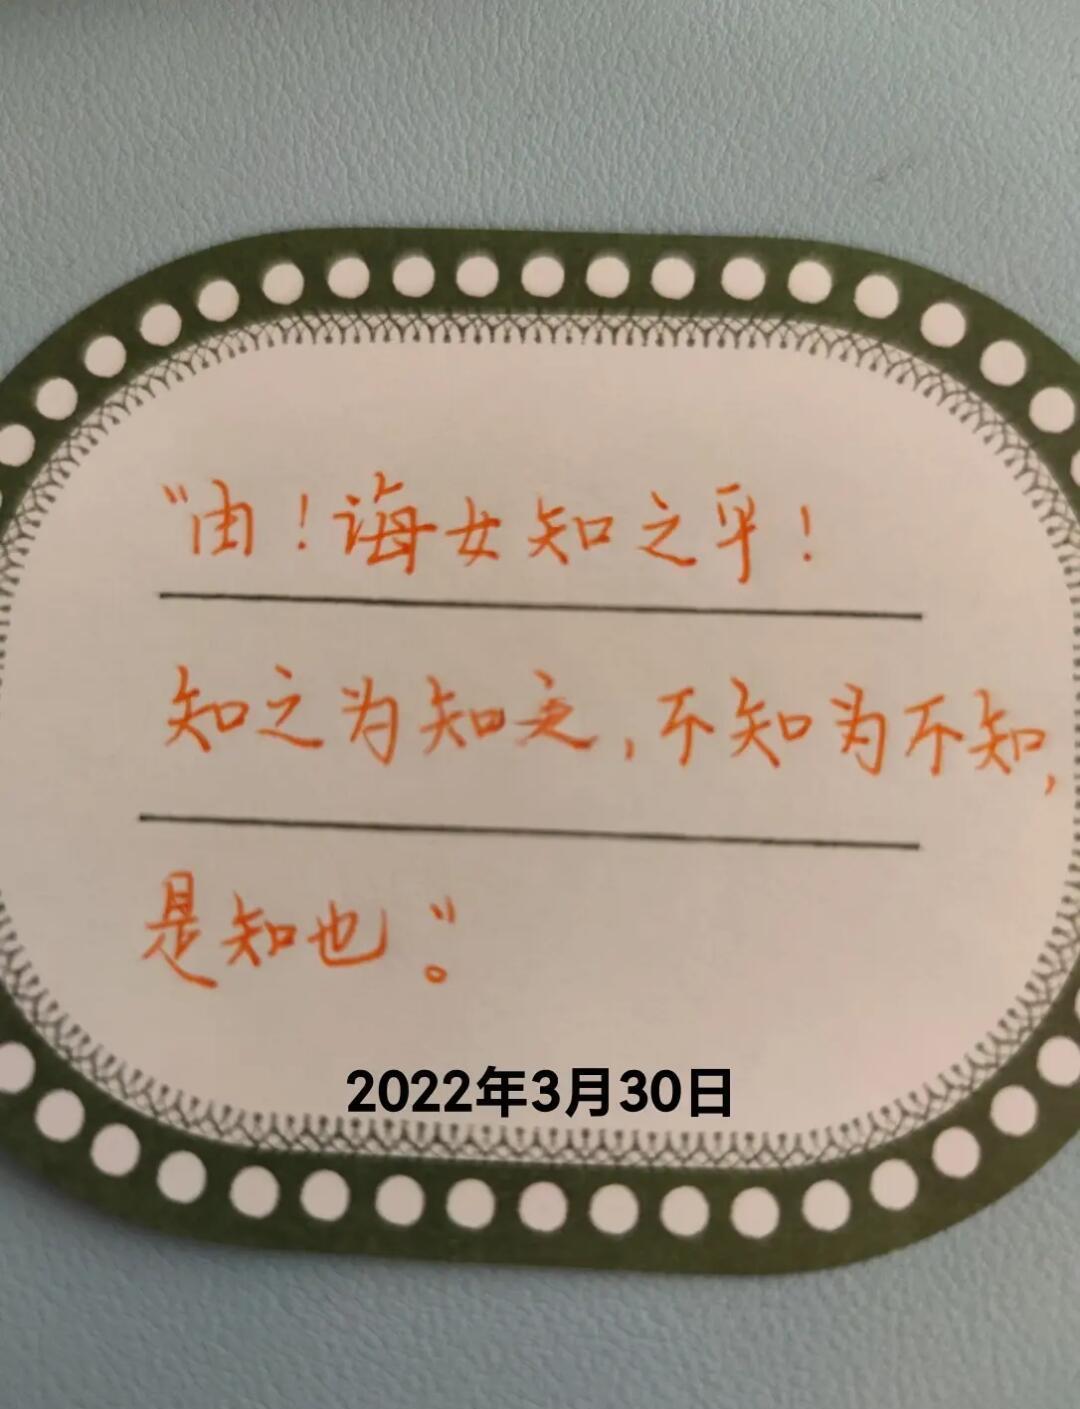 “由！诲女知之乎！
知之为知之，不知为不知，
是知也”。
2022年3月30日